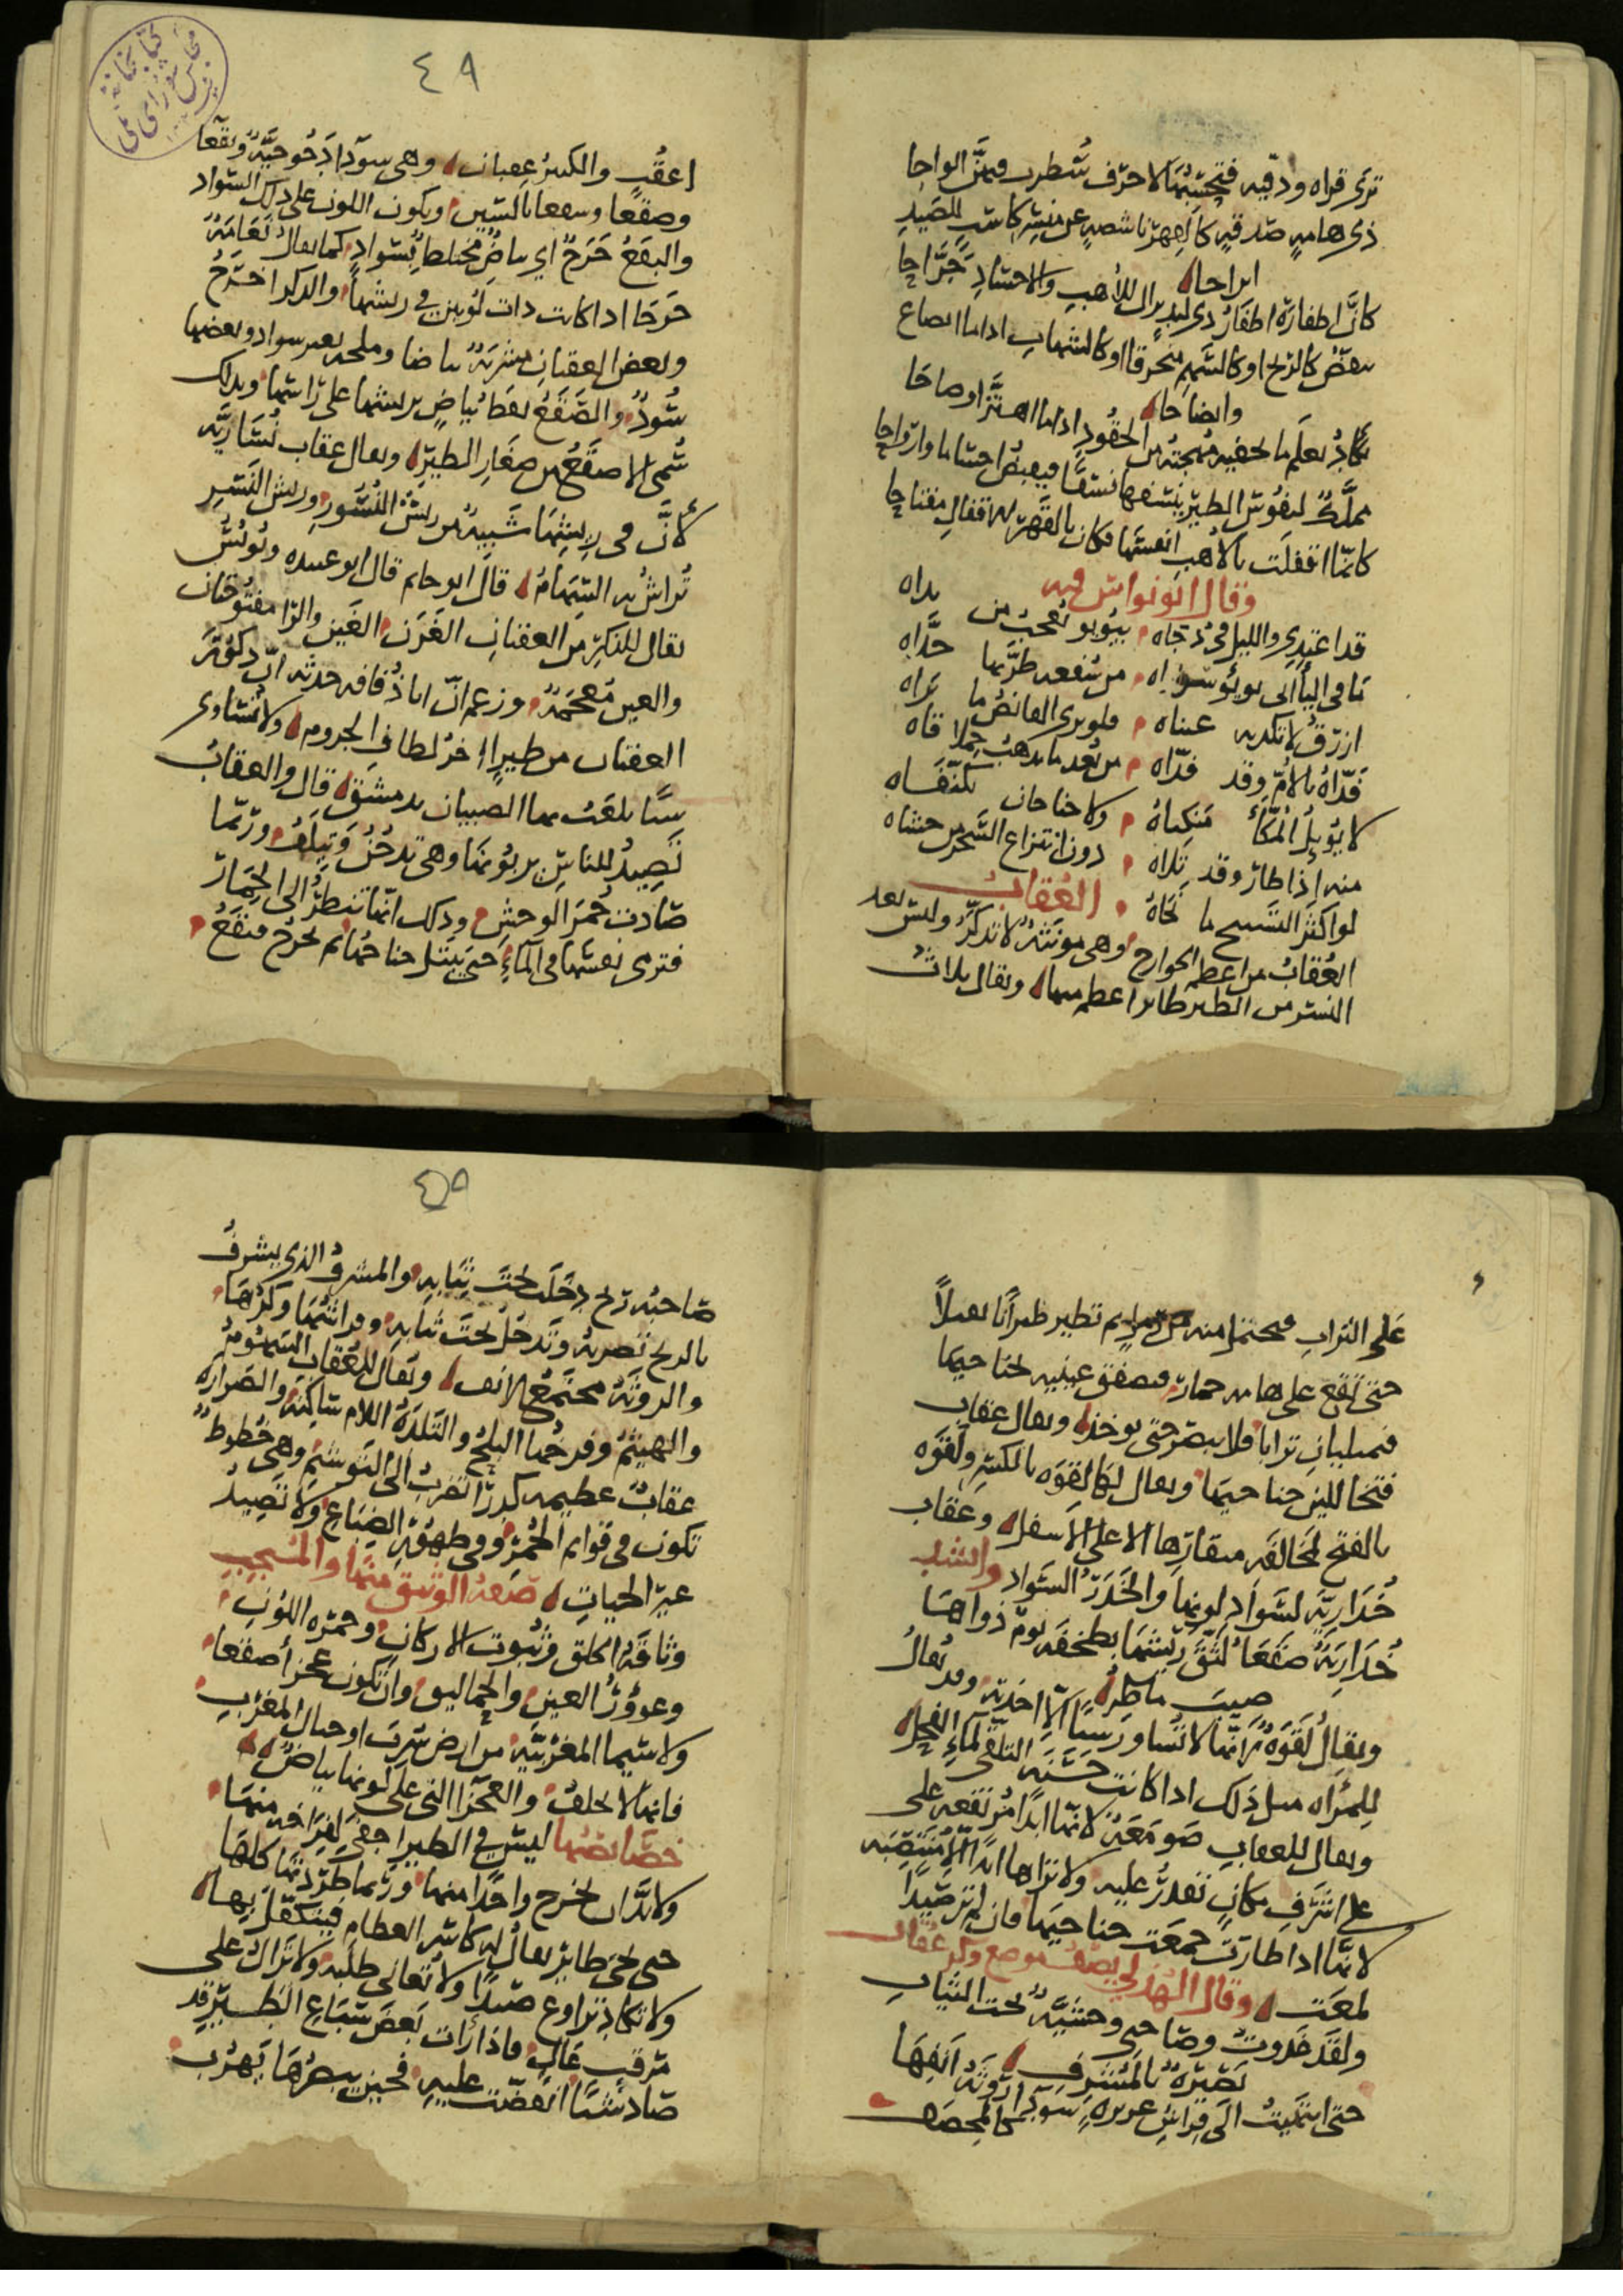 ترى قراه ودفيه فتحسبها لاحرف سُطرت فيهنّ الواحا
ذى هامةٍ صدقيه كالفهر ناشصه عن منشر كاشر للصيد
كانّ اظفاره اظفار ذى لبد للأُهب والاحشاد جرّاحا
ينقضّ كالريح او كالسهم منخرقا او كالشهاب اذا ما انصاع
وانضاحا
يكاد يعلم ما تخفيه مهجته من الحقود اذا ما اهتزّ او صاحا
مملّك لنفوس الطير ينسفها نسفًا فيقبض اجسادا وارواحا
كانّما اقفلت بالأهب انفسها فكان بالقهر للاقفال مفتاحا
وقال ابو نواس فيه
قد اغتدى والليل فى دجاه ببؤبؤ يعجب من رآه
ما فى اليآئى بوبؤ سواه من سفعه طرّ بها خدّاه
ازرق لا تكذبه عيناه فلو يرى القانص ما يراه
فدّاه بالأمّ وقد فدّاه من بعد ما يذهب حملاقاه
لا يوئل المكّاء منكباه ولا جناحان تكنّفاه
منه إذا طار وقد تلاه دون انتزاع السحر من حشاه
لو اكثر التسبيح ما نجّاه
العُقاب
العُقاب من اعظم الجوارح وهى مونثة لا تذكّر وليس بعد
النسر من الطير طاير اعظم منها ويقال ثلاث
٤٩
اعقُب والكثير عقبان وهى سوداَ دجوجيّة وبقعا
وصقعا وسقعا بالسين ويكون اللون على ذلك السواد
والبقع خرجٌ اي بياضٌ مختلط بسواد كما يقال نعامة
خرجا اذا كانت ذات لونين فى ريشها والذكر اخرج
وبعض العقبان بياضا بغير سواد وبعضها
سُودٌ والصقع نقط بياضٍ بريشها على راسها وبذلك
سُمى الاصقع من صغار الطير ويقال عقاب نُسَاريّة
لأنّ فى ريشها شبيه من ريش النُسُور وريش النسر
تُراش به السّهام قال ابو حاتم قال ابو عبيده ويونس
يقال للذكر من العقبان الغَرَن الغين والرا مفتوحتان
والغين مُعجَمه وزعم انّ ابا ذُفافه حدثه انّ ذكورَ
العقبان من طيرٍ اخر لطاف الجروم لا تُساوى
شيًا يلعب بها الصبيان بدمشق قال والعقاب
تصيدُ للناس يربونها وهى تدجُن وتيلف وربّما
صَادت حُمَر الوحش وذلك انّها تنظرُ الى الحمار
فترمى نفسها فى المآء حتى يبتل جناحُها ثم تخرج فتقع
على التراب فتحتمل منه ثم تطير طيرانًا ثقيلاً
حتى تقع على هامه حمار فتصفق عينيه بجناحيها
فتمليان ترابا فلا يبصر حتى يوخذ ويقال عقاب
فتخا للين جناحيها ويقال لها لقوه بالكسر ولَقوَه
بالفتح لمخالفه منقارها الاعلى الاسفل وعقاب
خُداريّه لسَواد لونها والخَدَرُ السَواد وانشد
خُدَاريّةٌ صَقعَا لثّقَ ريشَها بطخفه يوم ذو اهاضيب
ماطر
ويقالُ لَقوَةٌ لانّها لا تُساور شيئًا الاّ اخذته وقد يُقالُ
للمراه مثل ذلك اذا كانت حسنه التلقى لماء الفحل
ويقال للعقاب صَومَعَة لانّها ابدًا مرتفعه على
على اشرف مكانٍ تقدرُ عليه ولا تراها ابدًا الاّ منتصبه
لانّها اذا طارت جمعت جناحيها فان لم تر صيدًا
لمعت وقال الهذلي يصف موضع وكر عقاب
ولقد غدوتُ وصاحبى وحشيّةٌ تحت الثياب
بَصيرَةٌ بالمُشرف
حتى انتهيتُ الى فراش عزيزه سودا روثة انفها
كالمخصف
٥٩
صاحبُه ريح دخلت تحت ثيابه والمشرف الذى يشرف
بالريح تصربه وتدخل تحت ثيابه وفراشها وكرُها
والروثة مجتمع الانف ويقال للعُقاب السَهُومُ
والهيثم وفرخها البلح والتلدة اللام ساكنه والضراره
عقابٌ عظيمه كدرا تضرب الى التوشيم وهى خُطوط
تكون فى قوايم الحُمر وفى طهُوَّة الضِباع ولا تصيدُ
غير الحيات صفه الوثيق منها والمنجب
وثاقة الخلق وثبوت الاركان وحمره اللون
وغوؤرُ العين والحماليق وان تكون عجزا صقعا
ولا سيما المغربيّة من ارض سُرت او جبال المغرب
فانها لا تخلف والعجزا التى على لونها بياضٌ
خصايصُها ليس فى الطير اجفى لفراخه منها
ولا بدّ ان تخرج واحدًا منها وربما طردتها كلها
حتى يجى طايرٌ يقال له كاسر العظام فيتكفّل بها
ولا تكاد تراوغ صيدًا ولا تُعانى طلبه ولا تزال على
مرقبٍ عالٍ فاذا رأت بعضَ سباع الطير قد
صاد شيًا انقضّت عليه فحين يبصرُها يهرُب